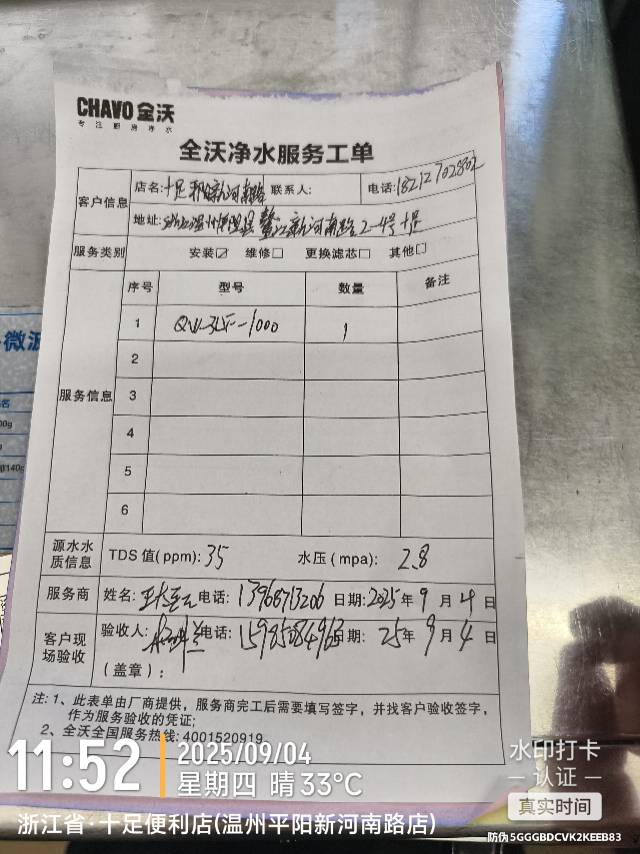 CHAVO 全沃
专注厨房净水
全沃净水服务工单
客户信息 店名: 十足 新河南路 联系人: 电话: 18212702802
地址: 温州 县鳌江新河南路2-4号十足
服务类别 安装☑ 维修☐ 更换滤芯☐ 其他☐
服务信息 序号 型号 数量 备注
1 -1000 1
2
3
4
5
6
源水水质信息 TDS 值(ppm): 35 水压(mpa): 2.8
服务商 姓名: 电话: 13968713206 日期: 2025年 9 月 4 日
客户现场验收 验收人: 电话: 15985084963 日期: 25年 9 月 4 日
(盖章):
注: 1、此表单由厂商提供，服务商完工后需要填写签字，并找客户验收签字，
作为服务验收的凭证;
2、全沃全国服务热线: 4001520919
微波
名
00g
11:52 2025/09/04
星期四 晴 33℃
浙江省·十足便利店(温州平阳新河南路店)
水印打卡
认证
真实时间
防伪5GGGBDCVK2KEEB83